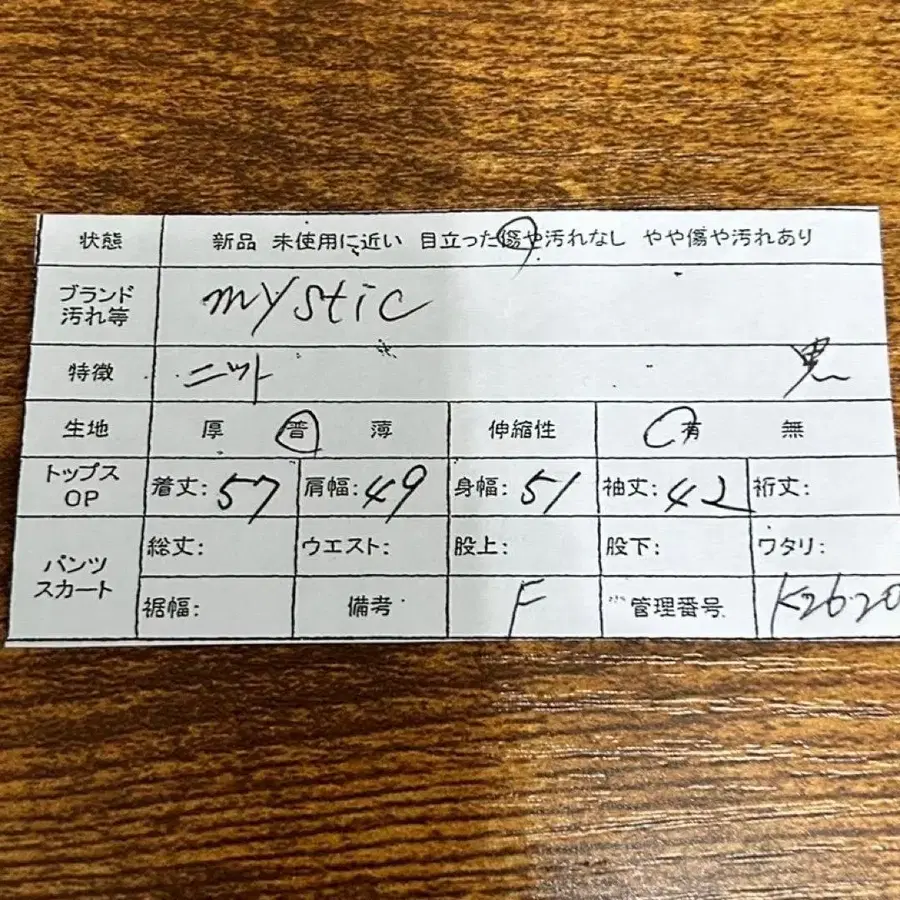 状態 新品 未使用に近い 目立った傷や汚れなし やや傷や汚れあり
ブランド
汚れ等 mystic
特徴 ニット 黒
生地 厚 普 薄 伸縮性 有 無
トップス
OP 着丈: 57 肩幅: 49 身幅: 51 袖丈: 42 裄丈:
パンツ
スカート 総丈: ウエスト: 股上: 股下: ワタリ:
裾幅: 備考 F 管理番号 K2620